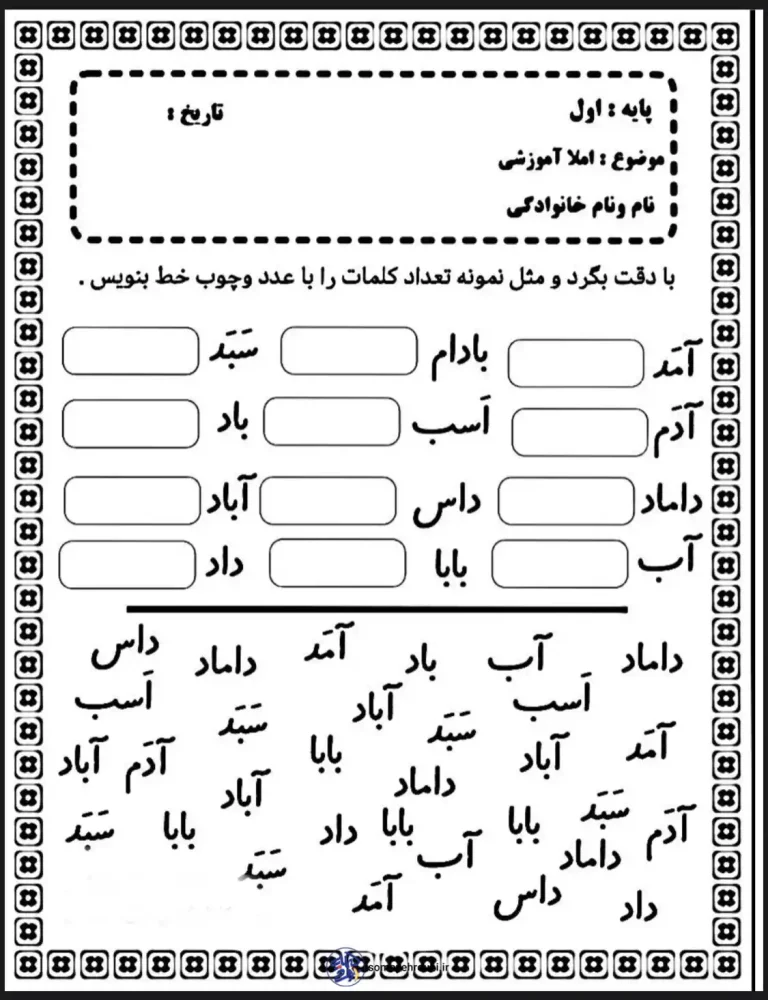 پایه : اول تاریخ :
موضوع : املا آموزشی
نام ونام خانوادگی
با دقت بگرد و مثل نمونه تعداد کلمات را با عدد وچوب خط بنویس .
آمَد بادام سَبَد
آدَم اَسب باد
داماد داس آباد
آب بابا داد
داماد آب باد آمَد داماد داس
اَسب آباد اَسب
آمَد سَبَد سَبَد
آباد بابا آدَم آباد
سَبَد داماد آباد
آدَم بابا بابا داد بابا سَبَد
داماد آب سَبَد
داد داس آمَد